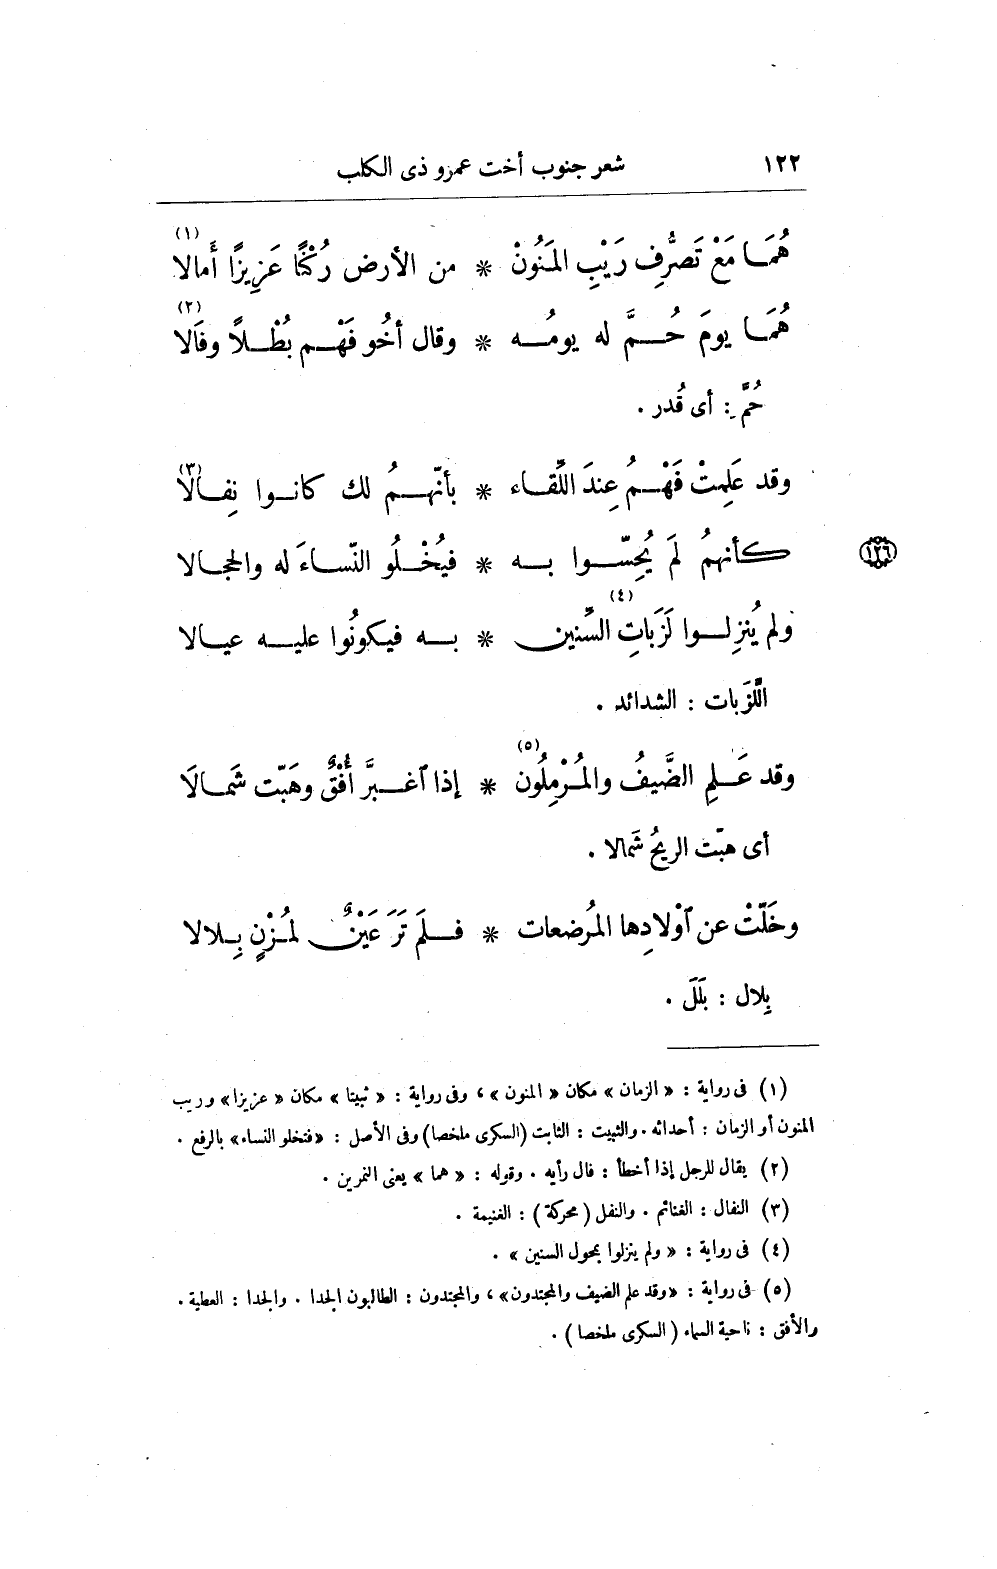 ١٢٢ شعر جنوب أخت عمرو ذى الكلب
هُمَـا مَعْ تَصَرُّفِ رَيْبِ المَنُونْ * من الأرض رُكْنًا عَزِيزًا أَمالا (١)
هُمَـا يومَ حُـمَّ له يومُـه * وقال أخُو فَهْـم بُطْـلًا وفَالا (٢)
حُمَّ : أى قُدر .
وقد عَلِمتْ فَهْـمُ عِندَ اللِّقـاء * بأنّهـمُ لك كانـوا نِفـالًا (٣)
كأنهمُ لَمَ يُحِسّـوا بـه * فيُخْـلُو النّسـاءَ له والحجـالا
(١٢٦)
ولم يُنزِلـوا لَزَباتِ السِّنين (٤) * بـه فيكونُوا عليـه عيـالا
اللَّزَبات : الشدائد .
وقد عَـلِمِ الضَّيفُ والمُـرْمِلُون (٥) * إذا ٱغـبرَّ أُفْقٌ وهَبّت شَمـالَا
أى هبّت الريحُ شَمالا .
وخَلّتْ عن آوْلادِها المُرضعات * فـلَم تَرَ عَيْنٌ لمُـزْنٍ بِـلالا
بِلال : بَلَلَ .
(١) فى رواية : « الزمان » مكان « المنون » ، وفى رواية : « ثبيتا » مكان « عزيزا » وريب
المنون أو الزمان : أحداثه . والثبيت : الثابت (السكرى ملخصا) وفى الأصل : «فتخلو النساء» بالرفع .
(٢) يقال للرجل إذا أخطأ : فال رأيه . وقوله : « هما » يعنى النمرين .
(٣) النفال : الغنائم . والنفل ( محركة ) : الغنيمة .
(٤) فى رواية : « ولم ينزلوا بمحول السنين » .
(٥) فى رواية : «وقد علم الضيف والمجتدون» ، والمجتدون : الطالبون الجدا . والجدا : العطية .
والأفق : ناحية السماء ( السكرى ملخصا ) .